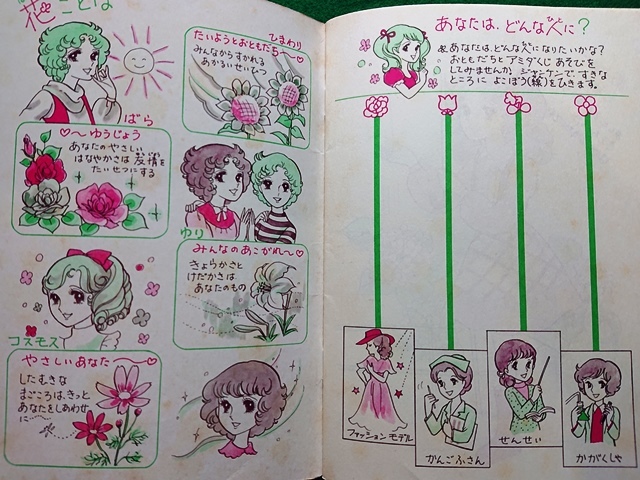 花ことば
ひまわり
たいようとおともだち〜♡
みんなからすかれる
あかるいせいひつ
ばら
♡〜ゆうじょう
あなたのやさしい
はなやかさは友情を
たいせつにする
ゆり
みんなのあこがれ〜♡
きよらかさと
けだかさは
あなたのもの
コスモス
やさしいあなた〜♡
したむきな
まごころは、きっと
あなたをしあわせ
に
あなたは、どんな人に?
あなたは、どんな人になりたいかな?
おともだちとアミダくじあそびを
してみませんか。ジャンケンで、すきな
ところに よこぼう(線)をひきます。
ファッションモデル
かんごふさん
せんせい
かがくしゃ